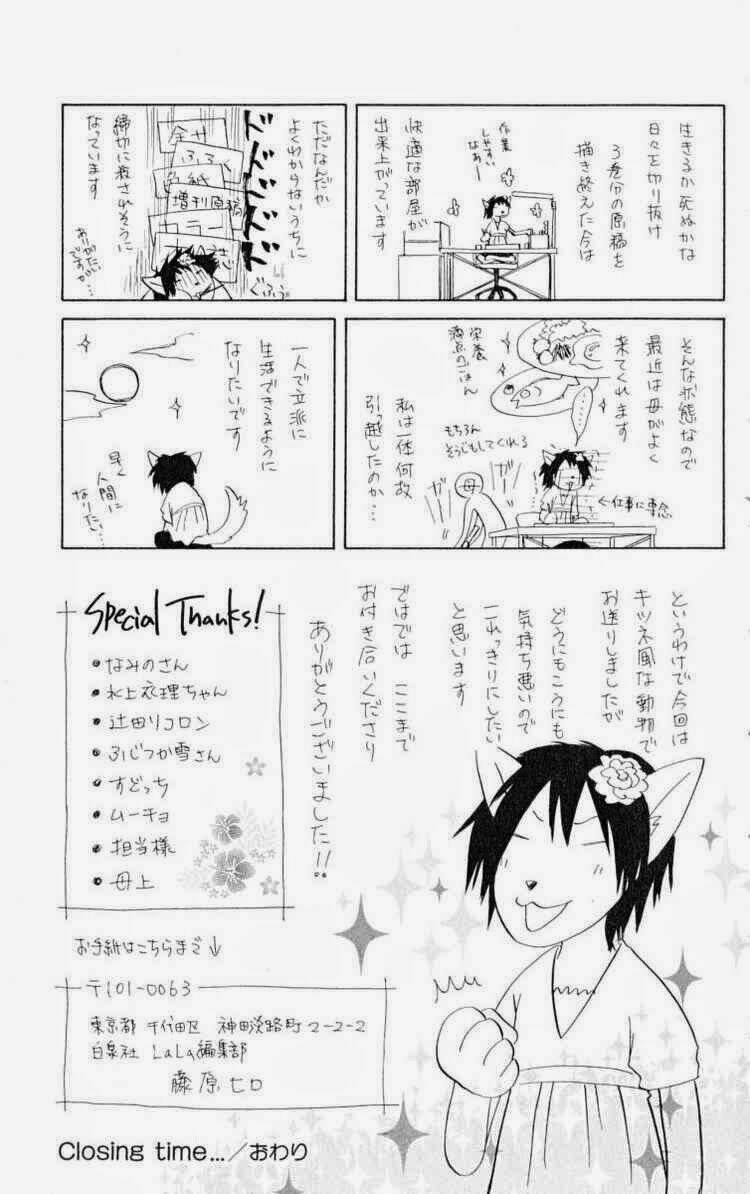 生きるか死ぬかな
日々を切り抜け
3巻分の原稿を
描き終えた今は
作業
しやすい
なあー
快適な部屋が
出来上がっています
ただなんだか
よくわからないうちに
ドドドドド
全サ
ふろく
色紙
増刊原稿
カラー
締切に殺されそうに
なっています
ありがたい
ですが…
ぐふぅ
そんな状態なので
最近は母がよく
来てくれます
栄養
満点のごはん
……
もちろん
そうじもしてくれる
ガー
ガー
母
←仕事に専念
私は一体何故
引っ越したのか…
一人で立派に
生活できるように
なりたいです
早く
人間に
なりたい…
というわけで今回は
キツネ風な動物で
お送りしましたが
どうにもこうにも
気持ち悪いので
これっきりにしたい
と思います
ではでは ここまで
お付き合いくださり
ありがとうございました!!
Special Thanks!
・なみのさん
・水上衣理ちゃん
・辻田リコロン
・ふじつか雪さん
・すどっち
・ムーチョ
・担当様
・母上
お手紙はこちらまで↓
〒101-0063
東京都 千代田区 神田淡路町2-2-2
白泉社 LaLa編集部
藤原ヒロ
Closing time…／おわり